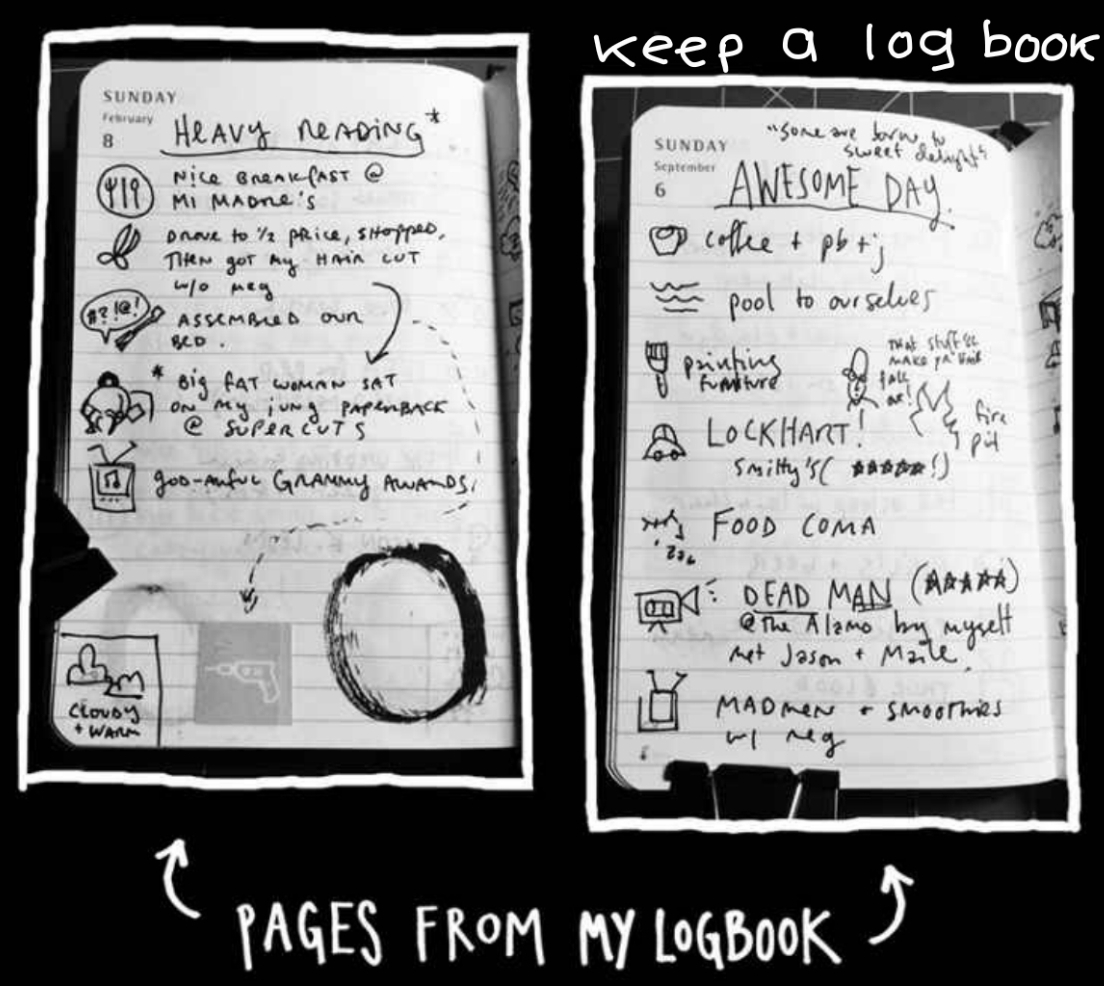 keep a log book
SUNDAY
February
8
HEAVY READING*
NICE BREAKFAST @
MI MADRE'S
DROVE TO 1/2 PRICE, SHOPPED,
THEN GOT MY HAIR CUT
W/O MEG
#?!@!
ASSEMBLED OUR
BED.
* BIG FAT WOMAN SAT
ON MY JUNG PAPERBACK
@ SUPERCUTS
GOD-AWFUL GRAMMY AWARDS!
CLOUDY
+ WARM
"some are born to
sweet delight"
SUNDAY
September
6
AWESOME DAY.
coffee + pb+j
pool to ourselves
painting
furniture
THAT STUFF'LL
MAKE YA HAIR
FALL
OUT!
fire
pit
LOCKHART!
Smitty's (★★★★★!)
FOOD COMA
ZZZ
DEAD MAN (★★★★★)
@ The Alamo by myself
met Jason +
MADMEN + SMOOTHIES
w/ meg
PAGES FROM MY LOGBOOK